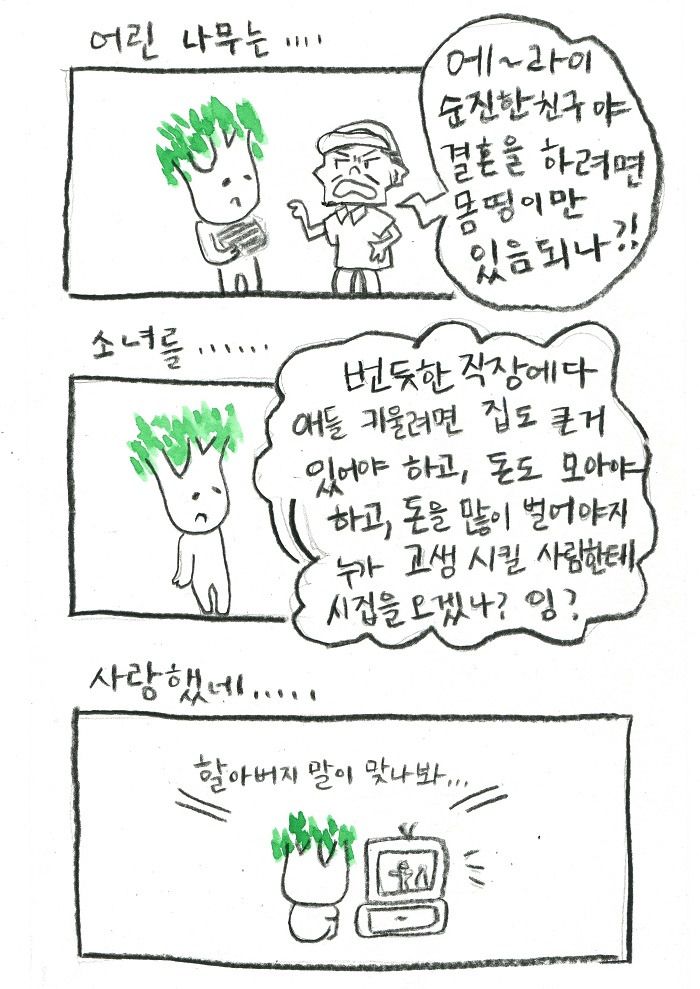 어린 나무는 ....
에~라이
순진한친구야
결혼을 하려면
몸띵이만
있음되나?!
소녀를 ......
번듯한 직장에다
애들 키울려면 집도 큰거
있어야 하고, 돈도 모아야
하고, 돈을 많이 벌어야지
누가 고생 시킬 사림한테
시집을 오겠나? 잉?
사랑했네.....
할아버지 말이 맞나봐...